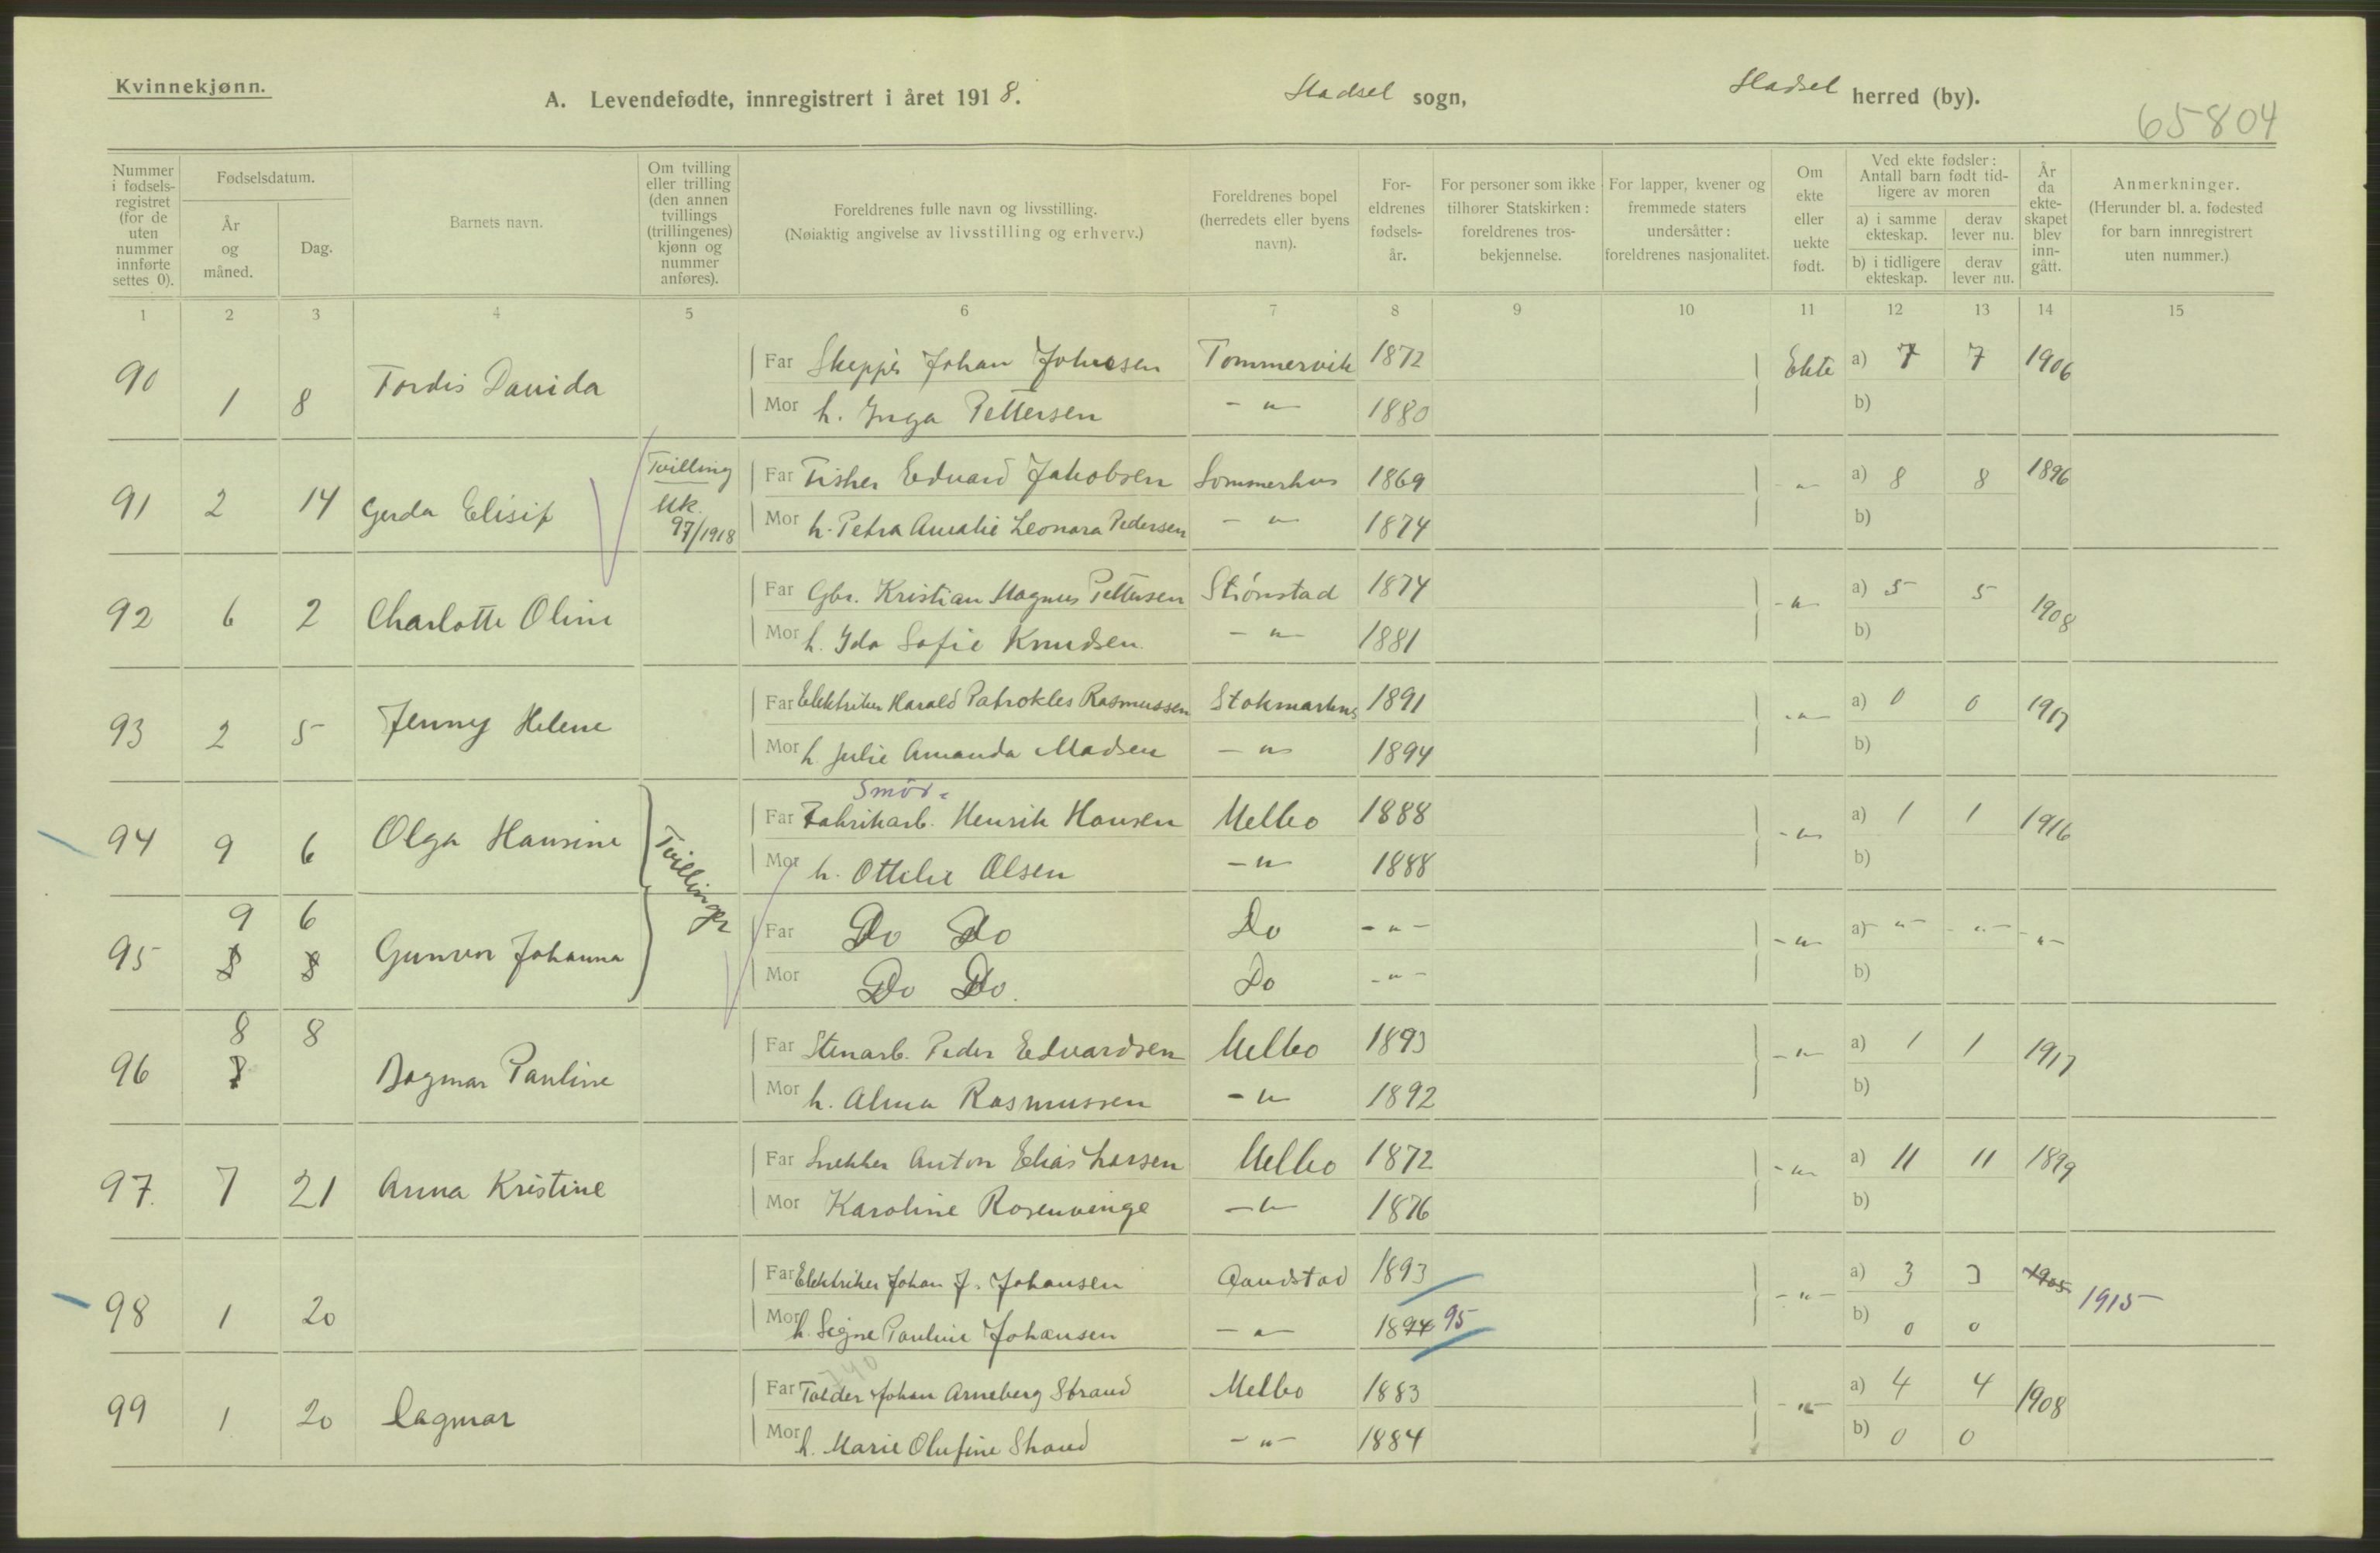 Kvinnekjønn.
A. Levendefødte, innregistrert i året 1918. Hadsel sogn, Hadsel herred (by).
65804
Nummer i fødsels-registret (for de uten nummer innførte settes 0).
Fødselsdatum.
År og måned.
Dag.
Barnets navn.
Om tvilling eller trilling (den annen tvillings (trillingenes) kjønn og nummer anføres).
Foreldrenes fulle navn og livsstilling.
(Nøiaktig angivelse av livsstilling og erhverv.)
Foreldrenes bopel (herredets eller byens navn).
For-eldrenes fødsels-år.
For personer som ikke tilhører Statskirken: foreldrenes tros-bekjennelse.
For lapper, kvener og fremmede staters undersåtter: foreldrenes nasjonalitet.
Om ekte eller uekte født.
Ved ekte fødsler: Antall barn født tid-ligere av moren
a) i samme ekteskap. derav lever nu.
b) i tidligere ekteskap. derav lever nu.
År da ekte-skapet blev inn-gått.
Anmerkninger.
(Herunder bl. a. fødested for barn innregistrert uten nummer.)
1 2 3 4 5 6 7 8 9 10 11 12 13 14 15
90 1 8 Tordis Davida Far Skepper Johan Johnsen Tommervik 1872 Ekte a) 7 7 1906
Mor h. Inga Pettersen - " - 1880 b)
91 2 14 Gerda Elisif Tvilling Mk. 97/1918 Far Fisker Edvard Jakobsen Sommerhus 1869 - " - a) 8 8 1896
Mor h. Petra Amalie Leonara Pedersen - " - 1874 b)
92 6 2 Charlotte Oline Far Gbr. Kristian Magnus Pettersen Strønstad 1874 - " - a) 5 5 1908
Mor h. Ida Sofie Knudsen. - " - 1881 b)
93 2 5 Jenny Helene Far Elektriker Harald Patrokles Rasmussen Stokmarknes 1891 - " - a) 0 0 1917
Mor h. Julie Amanda Madsen - " - 1894 b)
Smör-
94 9 6 Olga Hansine Tvillinger Far Fabrikarb. Henrik Hansen Melbo 1888 - " - a) 1 1 1916
Mor h. Ottelie Olsen - " - 1888 b)
9 6
95 8 8 Gunvor Johanna Far Do Do Do - " - - " - a) - " - - " - - " -
Mor Do Do. Do - " - b)
8 8
96 Dagmar Pauline Far Stenarb. Peder Edvardsen Melbo 1893 - " - a) 1 1 1917
Mor h. Alma Rasmussen - " - 1892 b)
97. 7 21 Anna Kristine Far Snekker Anton Elias Larsen Melbo 1872 - " - a) 11 11 1899
Mor Karoline Rosenvinge - " - 1876 b)
98 1 20 Far Elektriker Johan J. Johansen Sandstad 1893 - " - a) 3 3 1905 1915
Mor h. Signe Pauline Johansen - " - 1894 95 b) 0 0
99 1 20 Dagmar Far Tolder Johan Arneberg Strand Melbo 1883 - " - a) 4 4 1908
Mor h. Marie Olufine Strand - " - 1884 b) 0 0